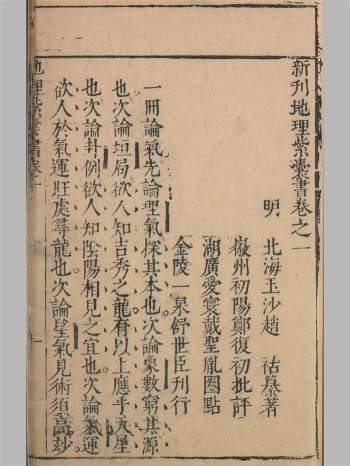 新刊地理紫囊書卷之一
明 北海玉沙趙 祜纂著
徽州初陽鄭復初批評
湖廣愛寰戴聖胤圈點
金陵一泉舒世臣刊行
一冊論氣先論理氣探其本也次論象數窮其源
也次論垣局欲人知吉秀之龍有以上應乎天星
也次論卦例欲人知陰陽相見之宜也次論氣運
欲人於氣運旺處尋龍也次論望氣見術須高玅
地理紫囊書卷一 一